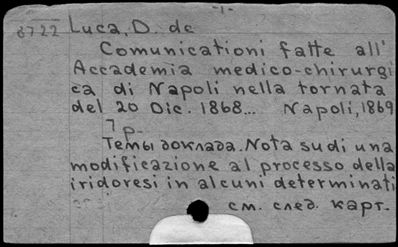 -1-
8722 Luca, D. de
Comunicationi fatte all'
Accademia medico-chirurgi
ca di Napoli nella tornata
del 20 Dic. 1868... Napoli, 1869
7 p.
Темы доклада. Nota su di una
modificazione al processo della
iridoresi in alcuni determinati
см. след. карт.